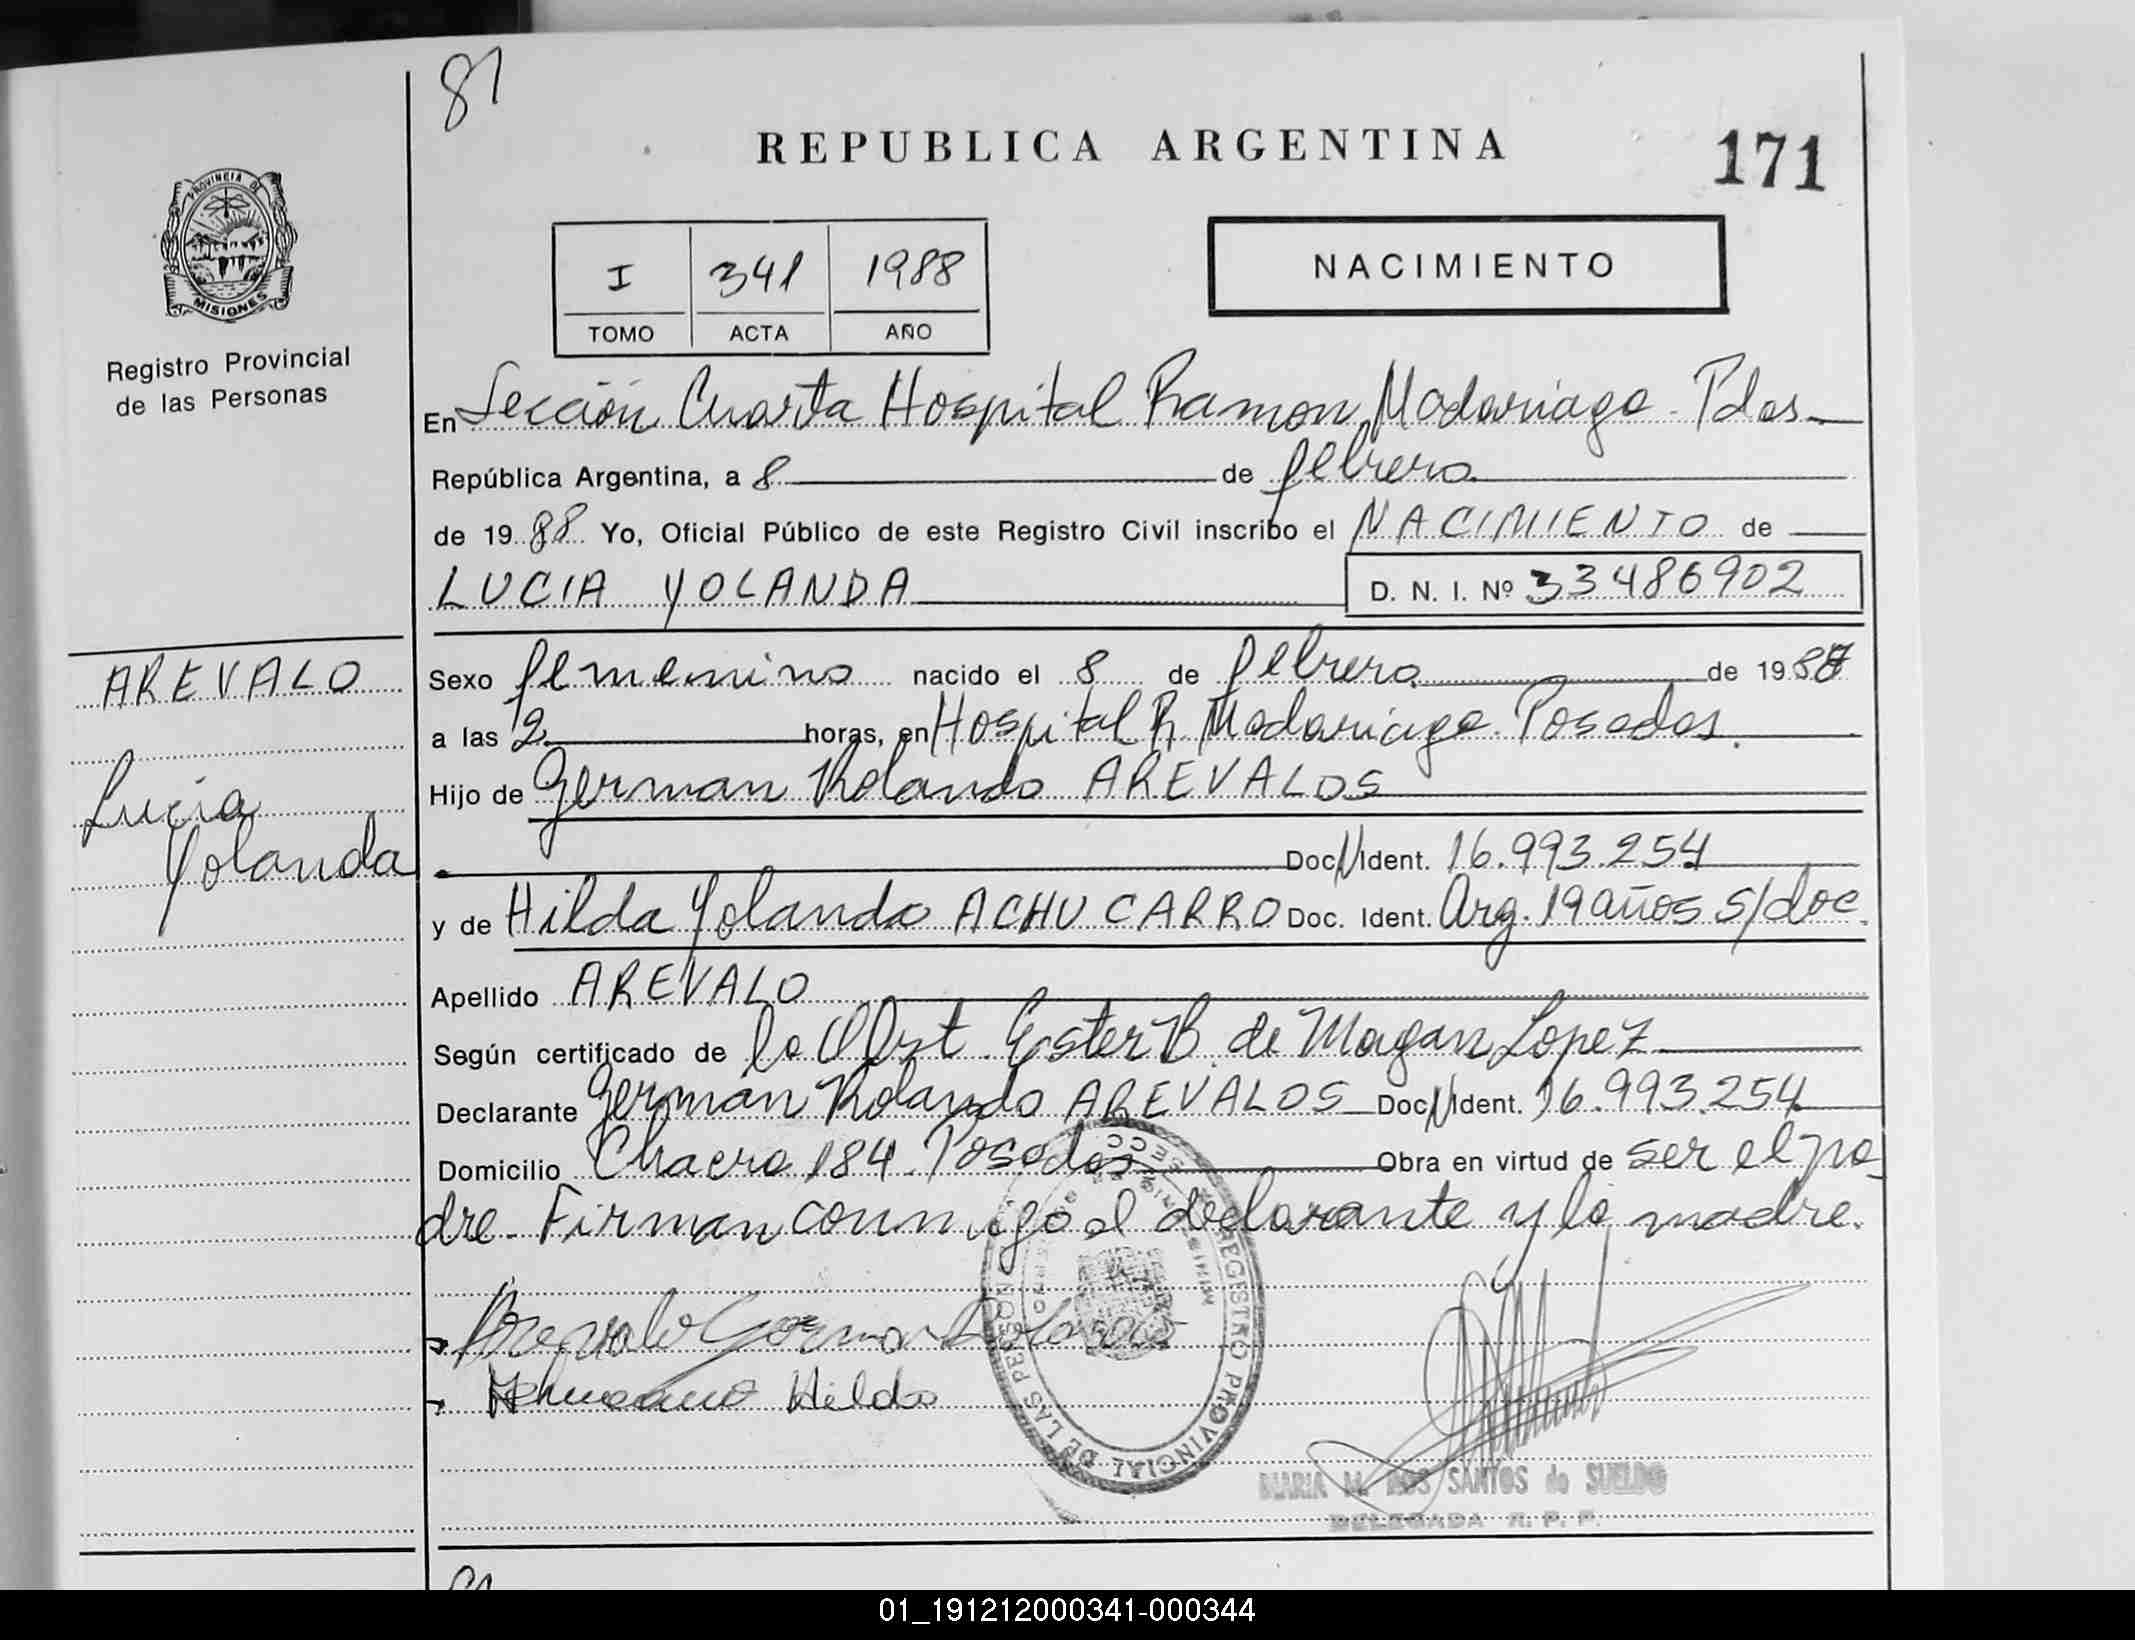 81
REPUBLICA ARGENTINA
171
PROVINCIA DE
MISIONES
Registro Provincial
de las Personas
I 341 1988
TOMO ACTA AÑO
NACIMIENTO
En Sección Cuarta Hospital Ramon Madariaga - Pdas
República Argentina, a 8 de febrero
de 1988 Yo, Oficial Público de este Registro Civil inscribo el NACIMIENTO de
LUCIA YOLANDA D. N. I. Nº 33486902
AREVALO
Lucia
Yolanda
Sexo femenino nacido el 8 de febrero de 1988
a las 2 horas, en Hospital R. Madariaga. Posadas.
Hijo de German Rolando AREVALOS
Doc N Ident. 16.993.254
y de Hilda Yolanda ACHUCARRO Doc. Ident. Arg. 19 años s/doc.
Apellido AREVALO
Según certificado de la Obst. Ester B. de Magan Lopez
Declarante German Rolando AREVALOS Doc N Ident. 16.993.254
Domicilio Chacra 184. Posadas Obra en virtud de ser el pa-
dre. Firman conmigo el declarante y la madre.
Arevalo German Rolando
Hilda
REGISTRO PROVINCIAL DE LAS PERSONAS
MARIA M. DOS SANTOS de SUELDO
DELEGADA R. P. P.
01_191212000341-000344